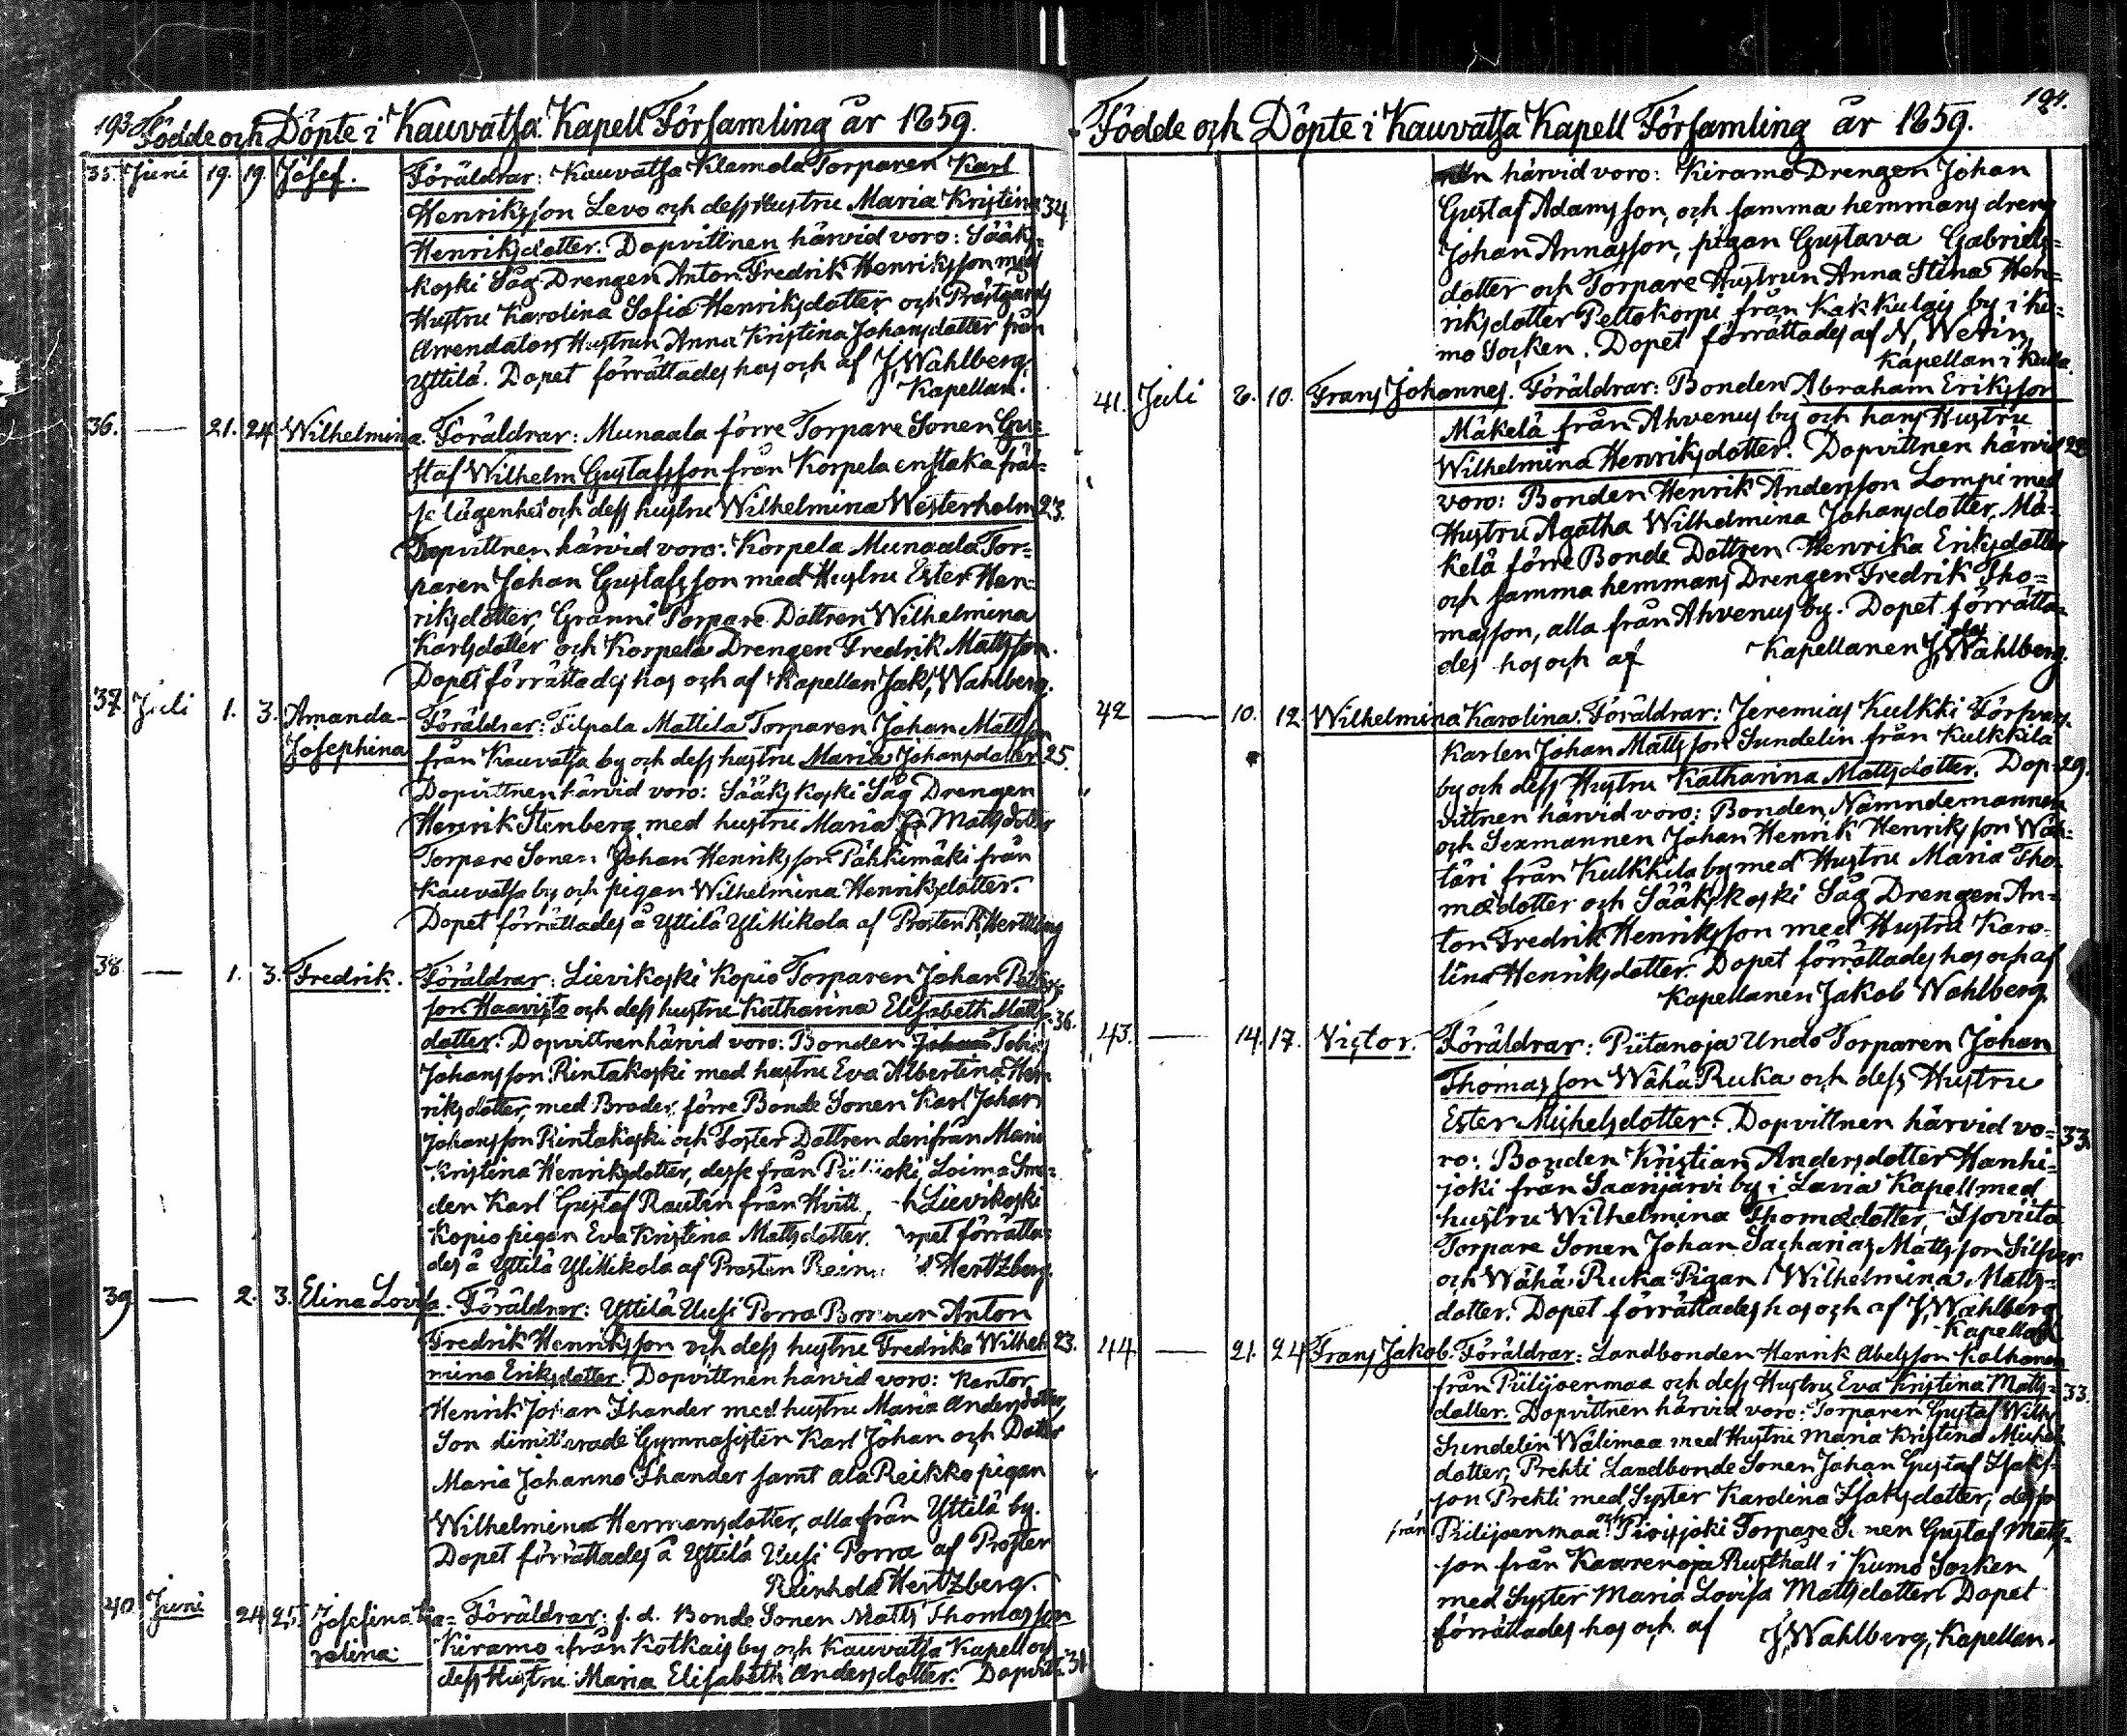 193.
Födde och Döpte i Kauvatsa Kapell Församling år 1859.
35. Juni 19. 19. Josef. Föräldrar: Kauvatsa Klemola Torparen Karl
Henriksson Levo och dess Hustru Maria Kristina 34
Henriksdotter. Dopvittnen härvid voro: Sääks=
koski Såg Drengen Anton Fredrik Henriksson med
Hustru Karolina Sofia Henriksdotter och Prästgårds
Arrendators Hustrun Anna Kristina Johansdotter från
Yttilä. Dopet förrättades hos och af J. Wahlberg,
Kapellan.
36. — 21. 24 Wilhelmina. Föräldrar: Munaala förre Torpare Sonen Gu=
staf Wilhelm Gustafsson från Korpela enstaka fräl=
se lägenhet och dess hustru Wilhelmina Westerholm 23.
Dopvittnen härvid voro: Korpela Munaala Tor=
paren Johan Gustafsson med Hustru Ester Hen=
riksdotter, Granni Torpare Dottren Wilhelmina
Karlsdotter och Korpela Drengen Fredrik Mattsson.
Dopet förrättades hos och af Kapellan Jak. Wahlberg.
37. Juli 1. 3. Amanda- Föräldrar: Filpala Mattila Torparen Johan Mattsson
Josephina från Kauvatsa by och dess hustru Maria Johansdotter 25.
Dopvittnen härvid voro: Sääkskoski Såg Drengen
Henrik Stenberg med hustru Maria Mattsdotter
Torpare Sonen Johan Henriksson Pähkimäki från
Kauvatsa by och pigan Wilhelmina Henriksdotter.
Dopet förrättades å Yttilä YliMikola af Prosten R. Hertzberg
38. — 1. 3. Fredrik. Föräldrar: Lievikoski Kopio Torparen Johan Petters-
son Haavisto och dess hustru Katharina Elisabeth Matts- 36.
dotter. Dopvittnen härvid voro: Bonden Tobias
Johansson Rintakoski med hustru Eva Albertina Hen
riksdotter, med Broder förre Bonde Sonen Karl Johan
Johansson Rintakoski och Foster Dottren derifrån Maria
Kristina Henriksdotter, desse från Loima Sme=
den Karl Gustaf Rautin från Lievikoski
Kopio pigan Eva Kristina Mattsdotter. förrätta=
des å Yttilä YliMikola af Prosten Hertzberg.
39 — 2. 3. Elina Lovisa. Föräldrar: Yttilä Uusi Porra Bonden Anton
Fredrik Henriksson och dess hustru Fredrika Wilhel- 23.
mina Eriksdotter. Dopvittnen härvid voro: Kantor
Henrik Johan Ihander med hustru Maria Andersdotter,
Son dimitterade Gymnasisten Karl Johan och Dotter
Maria Johanna Ihander samt Ala Reikko pigan
Wilhelmina Hermansdotter, alla från Yttilä by.
Dopet förrättades å Yttilä Uusi Porra af Prosten
Reinhold Hertzberg.
40. Juni 24 25. Josefina Ka= Föräldrar: f. d. Bonde Sonen Matts Thomasson
rolina. Kiramo ifrån Kotkais by och Kauvatsa Kapell och
dess Hustru Maria Elisabeth Andersdotter. Dopvitt= 31
194.
Födde och Döpte i Kauvatsa Kapell Församling år 1859.
nen härvid voro: Kiramo Drengen Johan
Gustaf Adamsson, och samma hemmans dreng
Johan Annasson, pigan Gustava Gabriels=
dotter och Torpare Hustrun Anna Stina Hen=
riksdotter Peltokorpi från Kakkulais by i Ku=
mo Socken. Dopet förrättades af N,
Kapellan i Kulla.
41. Juli 6. 10. Frans Johannes. Föräldrar: Bonden Abraham Eriksson
Mäkelä från Ahvenus by och hans Hustru
Wilhelmina Henriksdotter. Dopvittnen härvid 22
voro: Bonden Henrik Andersson Lompi med
Hustru Agatha Wilhelmina Johansdotter, Mä-
kelä förre Bonde Dottren Henrika Eriksdotter
och samma hemmans Drengen Fredrik Tho=
masson, alla från Ahvenus by. Dopet förrätta=
des hos och af Kapellanen J. Wahlberg.
42 — 10. 12 Wilhelmina Karolina. Föräldrar: Jeremias Kulkki Försvars
Karlen Johan Mattsson Sundelin från Kulkkila
by och dess Hustru Katharina Mattsdotter. Dop- 29.
vittnen härvid voro: Bonden, Nämndemannen
och Sexmannen Johan Henrik Henriksson Wäh=
täri från Kulkkila by med Hustru Maria Tho
mædotter och Sääkskoski Såg Drengen An=
ton Fredrik Henriksson med Hustru Karo-
lina Henriksdotter. Dopet förrättades hos och af
Kapellanen Jakob Wahlberg.
43. — 14. 17. Victor. Föräldrar: Piitanoja Undo Torparen Johan
Thomasson Wähä Ruka och dess Hustru
Ester Michelsdotter. Dopvittnen härvid vo= 33.
ro: Bonden Kristian Andersdotter Hanhi=
joki från Saarijärvi by i Lavia Kapell med
hustru Wilhelmina Thomædotter, Isoviita
Torpare Sonen Johan Sacharias Mattsson Silfver
och Wähä Ruka Pigan Wilhelmina Matts=
dotter. Dopet förrättades hos och af J. Wahlberg
Kapellan
44 — 21. 24 Frans Jakob. Föräldrar: Landbonden Henrik Abelsson Kalhanen
från Piilijoenmaa och dess Hustru Eva Kristina Matts= 33.
dotter. Dopvittnen härvid voro: Torparen Gustaf Wilh.
Sundelin Wälimaa med Hustru Maria Kristina Michels
dotter, Prehti Landbonde Sonen Johan Gustaf Isaks=
son Prehti med Syster Karolina Isaksdotter, desse
från Piilijoenmaa och Piisijoki Torpare Sonen Gustaf Matts-
son från Kaurenoja Rusthåll i Kumo Socken
med Syster Maria Lovisa Mattsdotter. Dopet
förrättades hos och af J. Wahlberg, Kapellan.